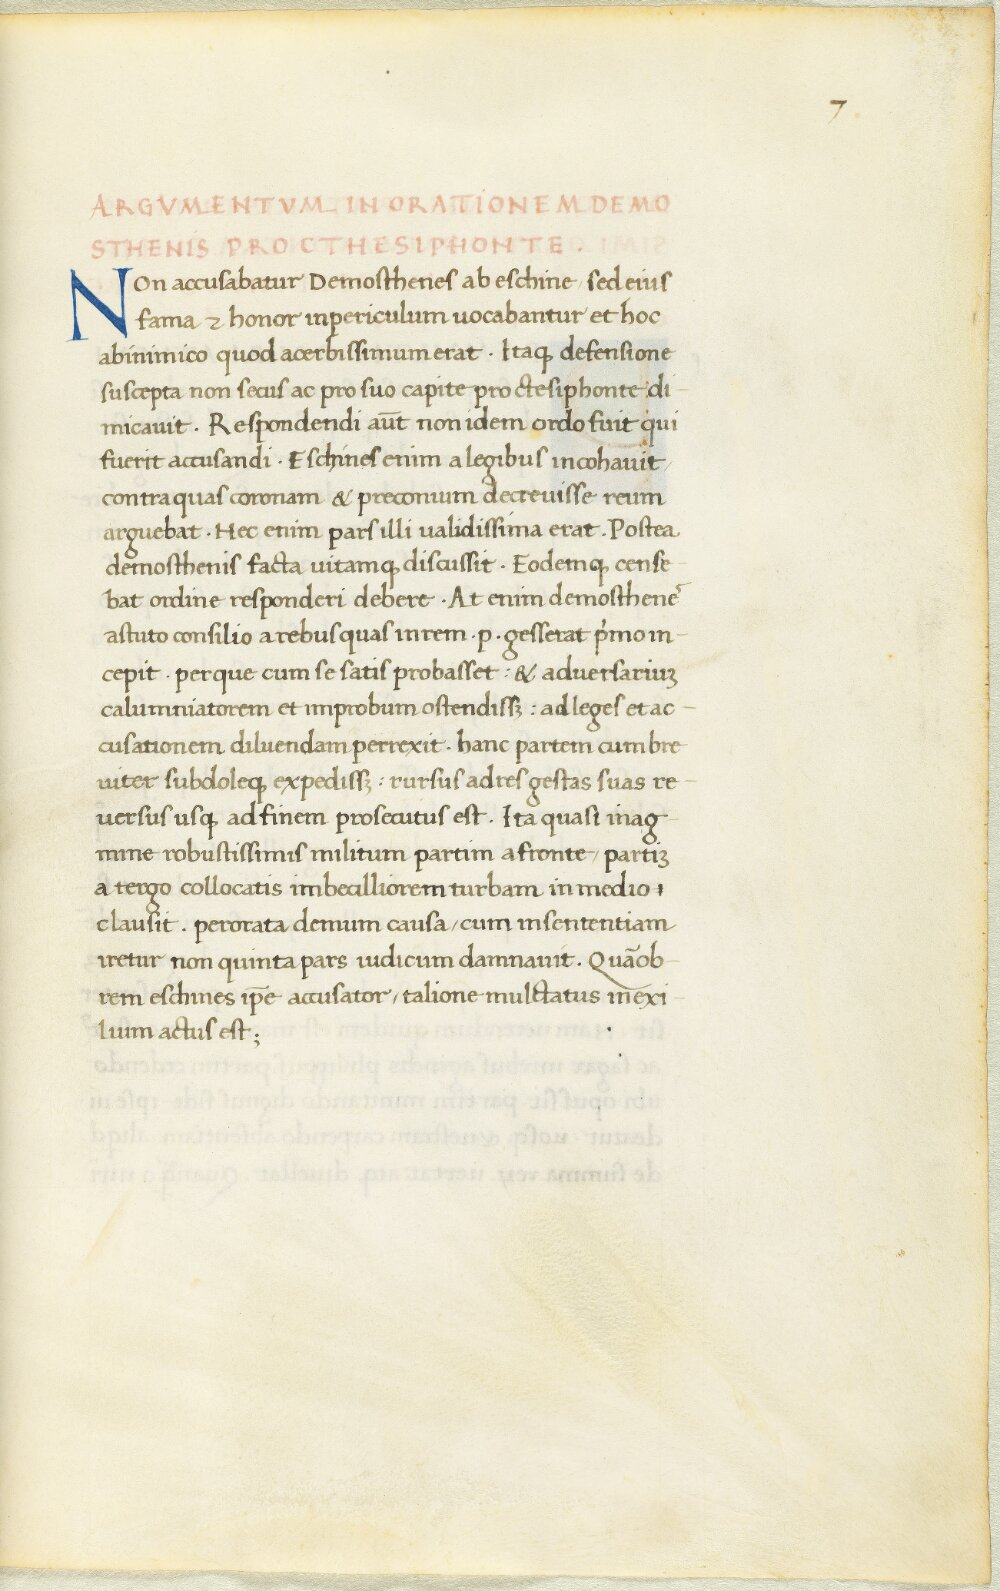 7
ARGVMENTVM IN ORATIONEM DEMO
STHENIS PRO CTHESIPHONTE .
NOn accusabatur Demosthenes ab eschine / sed eius
fama & honor in periculum uocabantur et hoc
ab inimico quod acerbissimum erat . Itaq; defensione
suscepta non secus ac pro suo capite pro ctesiphonte di-
micauit . Respondendi aūt non idem ordo fuit qui
fuerit accusandi . Eschines enim a legibus incohauit /
contra quas coronam & preconium decreuisse reum
arguebat . Hec enim pars illi ualidissima erat . Postea
demosthenis facta uitamq; discussit . Eodemq; cense-
bat ordine responderi debere . At enim demosthenes
astuto consilio a rebus quas in rem .p. gesserat p̄mo in-
cepit . perque cum se satis probasset : & aduersariuz
calumniatorem et improbum ostendissz : ad leges et ac-
cusationem diluendam perrexit . hanc partem cum bre-
uiter subdoleq; expedissz : rursus ad res gestas suas re-
uersus usq; ad finem prosecutus est . Ita quasi in ag-
mine robustissimis militum partim a fronte / partiz
a tergo collocatis imbecilliorem turbam in medio
clausit . perorata demum causa / cum in sententiam
iretur non quinta pars iudicum damnauit . Quāob-
rem eschines ip̄e accusator / talione mulctatus in exi-
lium actus est ;